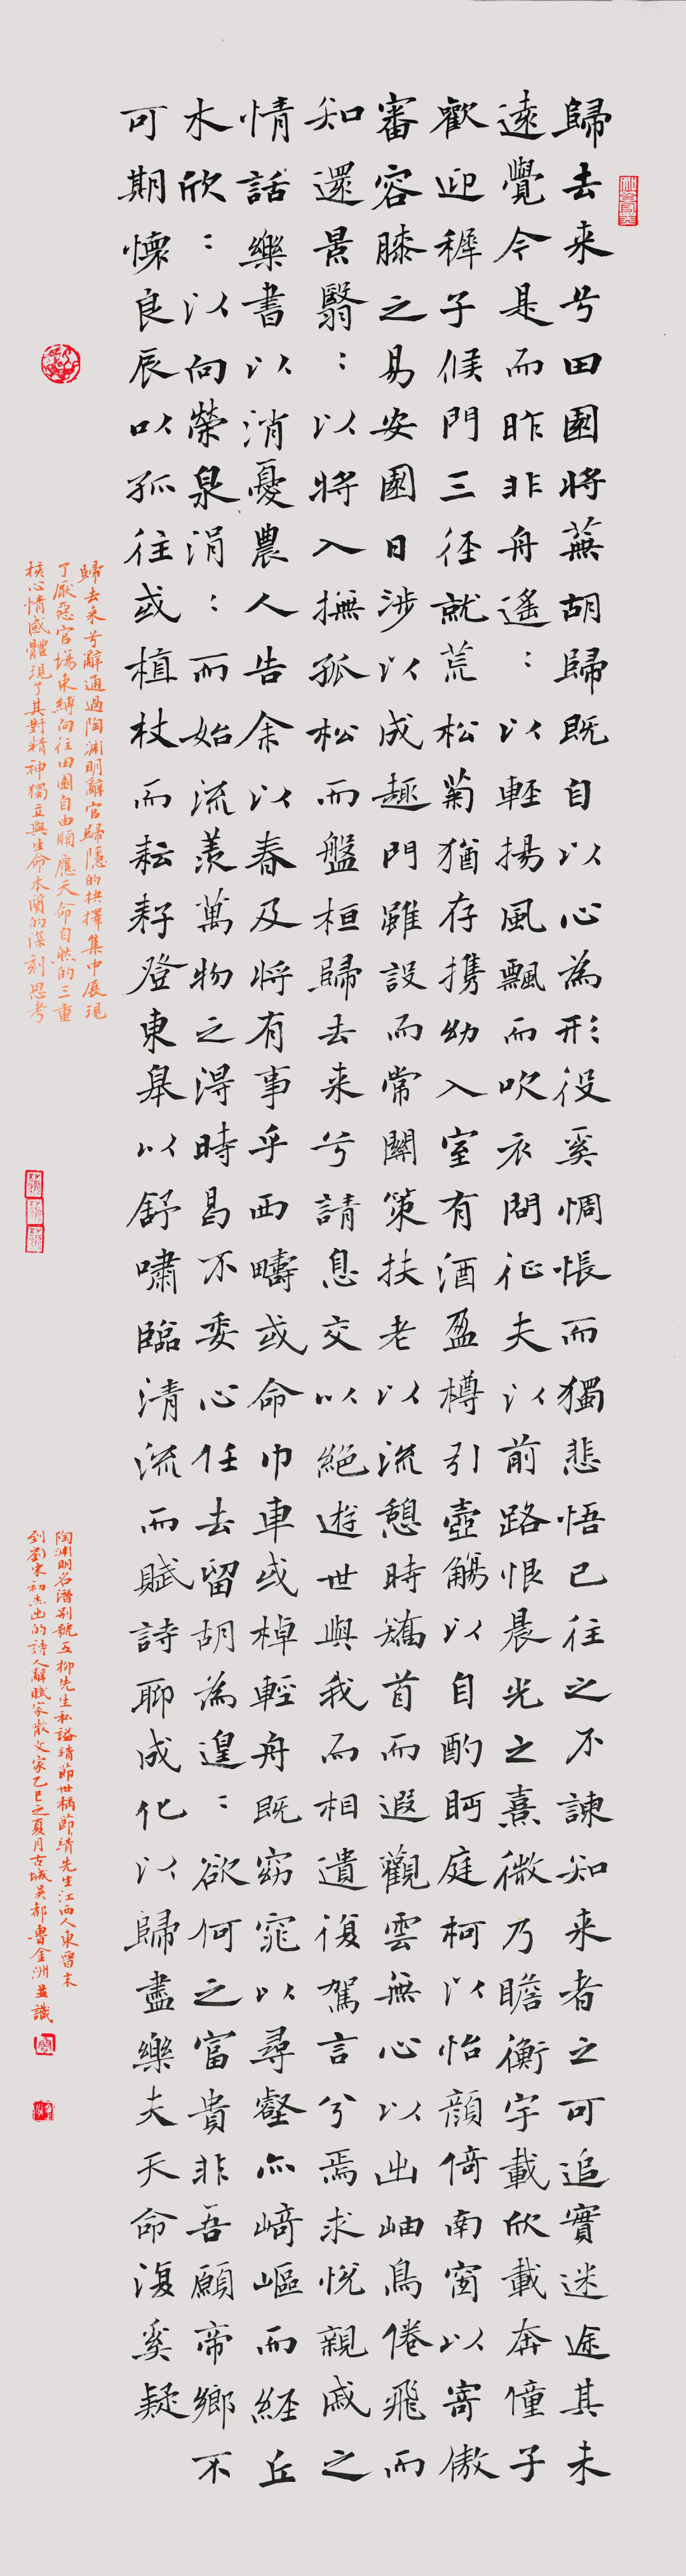 歸去来兮田園將蕪胡歸既自以心為形役奚惆悵而獨悲悟已往之不諫知来者之可追實迷途其未
遠覺今是而昨非舟遙：以輕揚風飄而吹衣問征夫以前路恨晨光之熹微乃瞻衡宇載欣載奔僮子
歡迎稺子候門三徑就荒松菊猶存攜幼入室有酒盈樽引壺觴以自酌眄庭柯以怡顔倚南窗以寄傲
審容膝之易安園日涉以成趣門雖設而常關策扶老以流憩時矯首而遐觀雲無心以出岫鳥倦飛而
知還景翳：以將入撫孤松而盤桓歸去来兮請息交以絕遊世與我而相遺復駕言兮焉求悅親戚之
情話樂書以消憂農人告余以春及將有事乎西疇或命巾車或棹輕舟既窈窕以尋壑亦崎嶇而経丘
木欣：以向榮泉涓：而始流羨萬物之得時曷不委心任去留胡為遑：欲何之富貴非吾願帝鄉不
可期懷良辰以孤往或植杖而耘耔登東皋以舒嘯臨清流而賦詩聊成化以歸盡樂夫天命復奚疑
歸去来兮辭通過陶淵明辭官歸隱的抉擇集中展現
了厭惡官場束縛向往田園自由順應天命自然的三重
核心情感體現了其對精神獨立與生命本質的深刻思考
陶淵明名潛别號五柳先生私謚靖節世稱節靖先生江西人東晉末
到劉宋初杰出的詩人辭賦家散文家乙巳之夏月古城吴都魯金洲並識